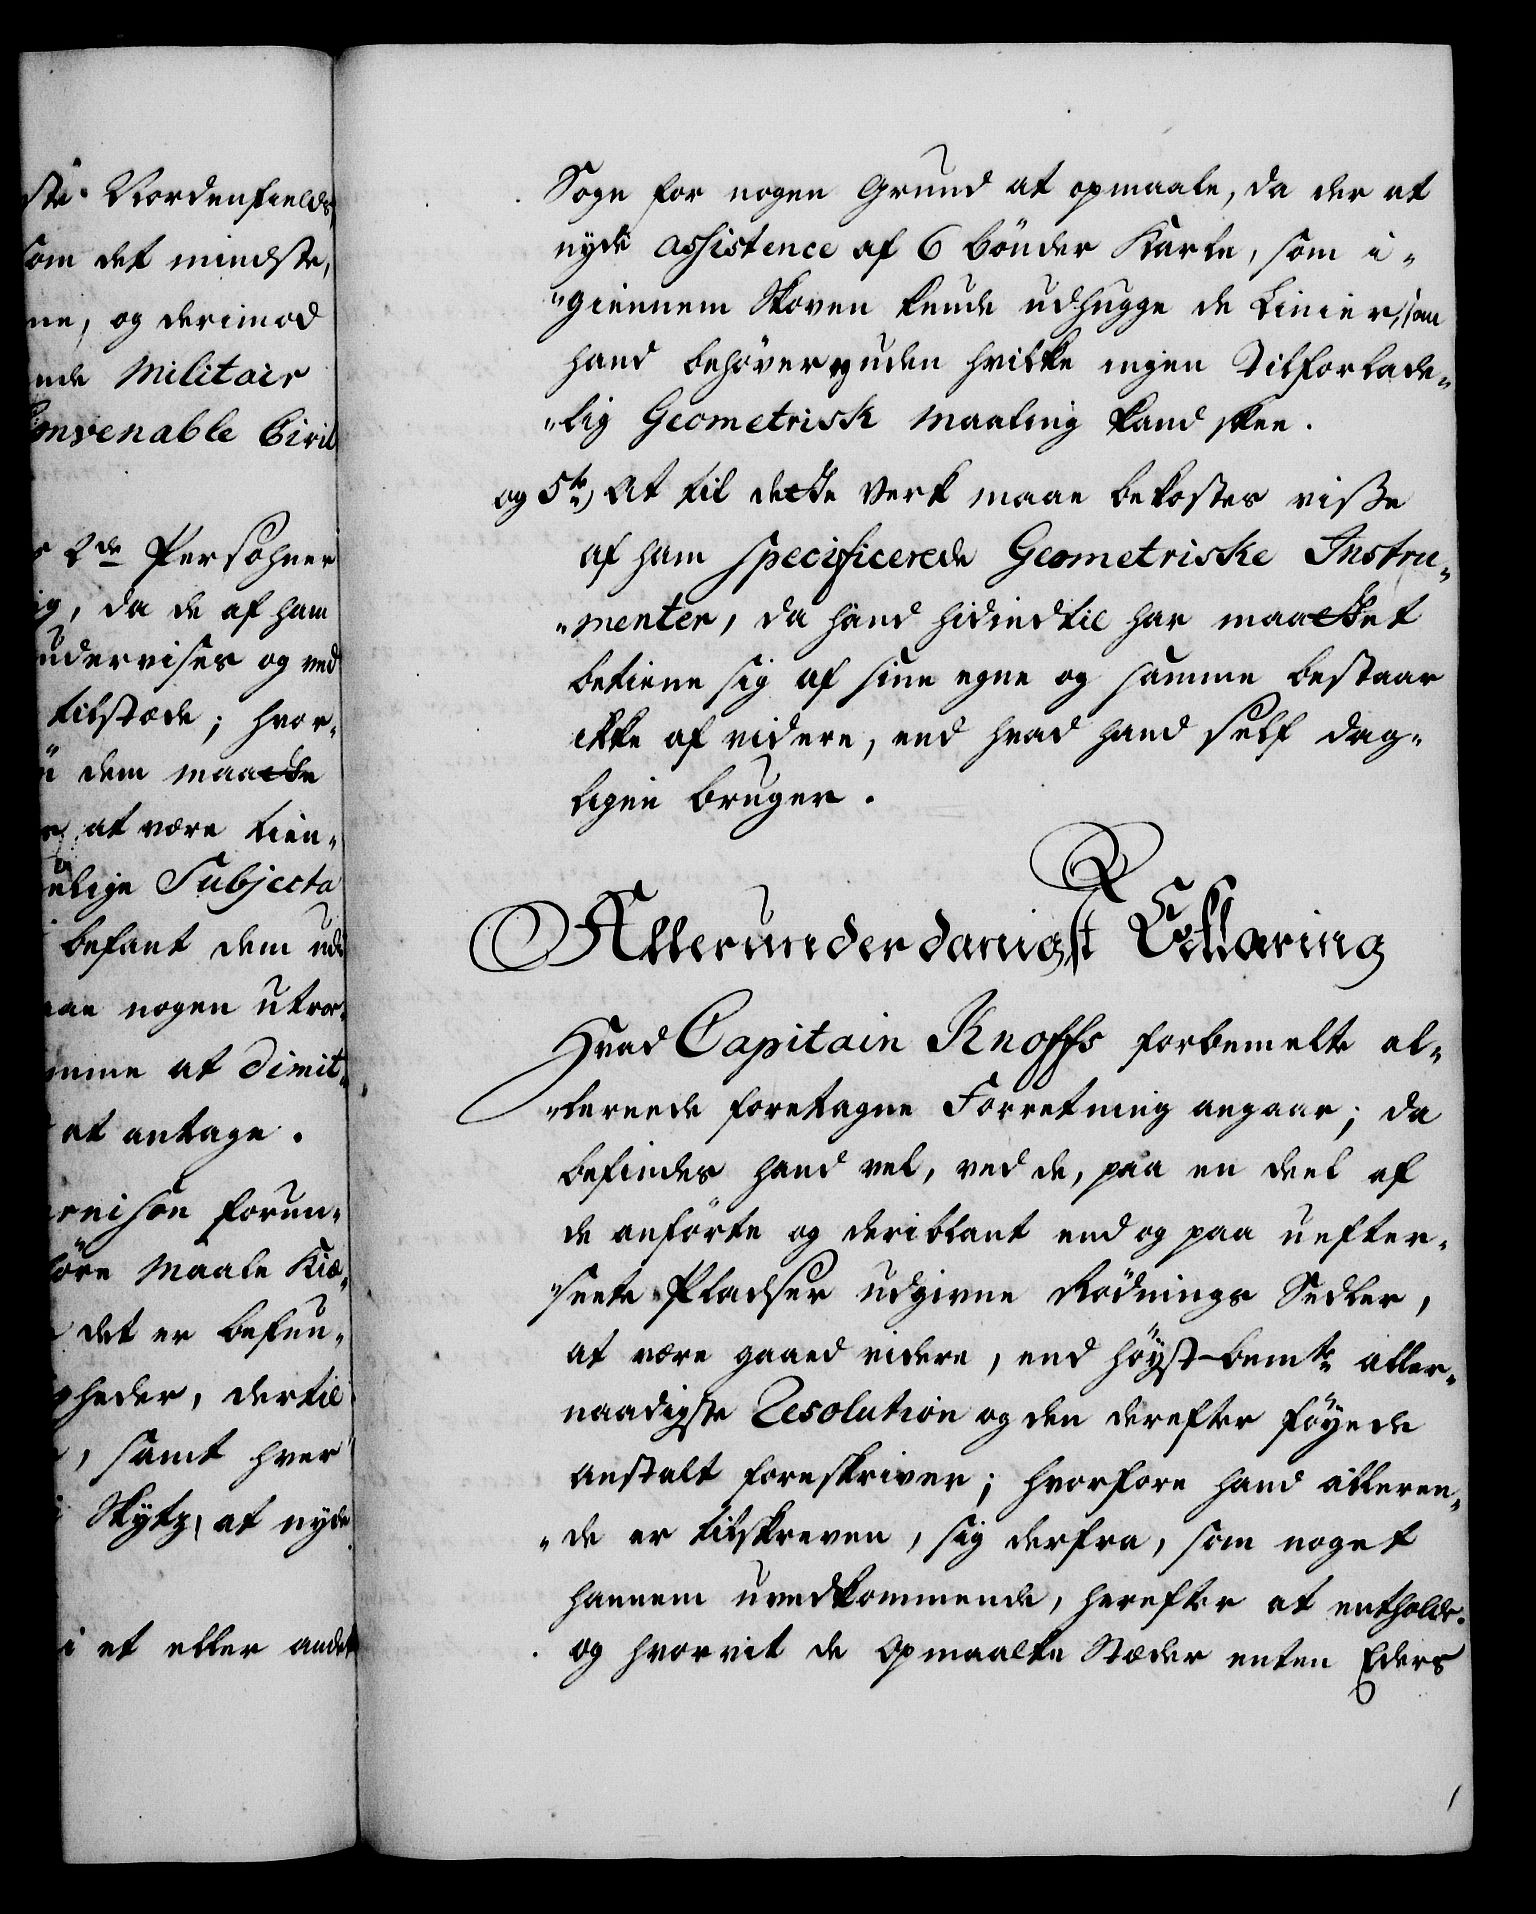 ste Nordenfields
som det mindste,
ne, og derimod
nde Militair
Convenable Civil
2de Persohner
ig, da de af ham
undervises og ved
tilstæde; hvor-
dem maatte
at være tien-
elige Subjecta
befant dem ud
aae nogen utroe-
mme at dimit-
at antage.
rnison forun-
føre Maale Kiæ-
det er befun-
gheder, dertil
, samt hver
Skytz, at nyde
i et eller andet
Sogn for nogen Grund at opmaale, da der at
nyde assistence af 6 bönder Karle, som i-
"giennem Skoven kunde udhugge de Linier, som
hand behöver og uden hvilke ingen Tilforlade-
"lig Geometrisk Maaling kand skee.
og 5te) At til dette Verk maae bekostes visse
af ham specificerede Geometriske Instru-
"menter, da hand hidindtil har maattet
betiene sig af sine egne og samme bestaar
ikke af videre, end hvad hand self dag-
ligen bruger.
Allerunderdanigst Erklæring
Hvad Capitain Knoffs forbemelte al-
"lereede foretagne Forretning angaar; da
befindes hand vel, ved de, paa en deel af
de anförte og deriblant end og paa uefter-
"seete Pladser udgivne Rödnings Sedler,
at være gaaed videre, end höyst-bemte aller-
naadigste Resolution og den derefter föyede
Anstalt foreskriver; hvorfore hand alleree-
"de er tilskreven, sig derfra, som noget
hannem uvedkommende, herefter at entholde.
og hvorvit de Opmaalte Stæder enten Eders